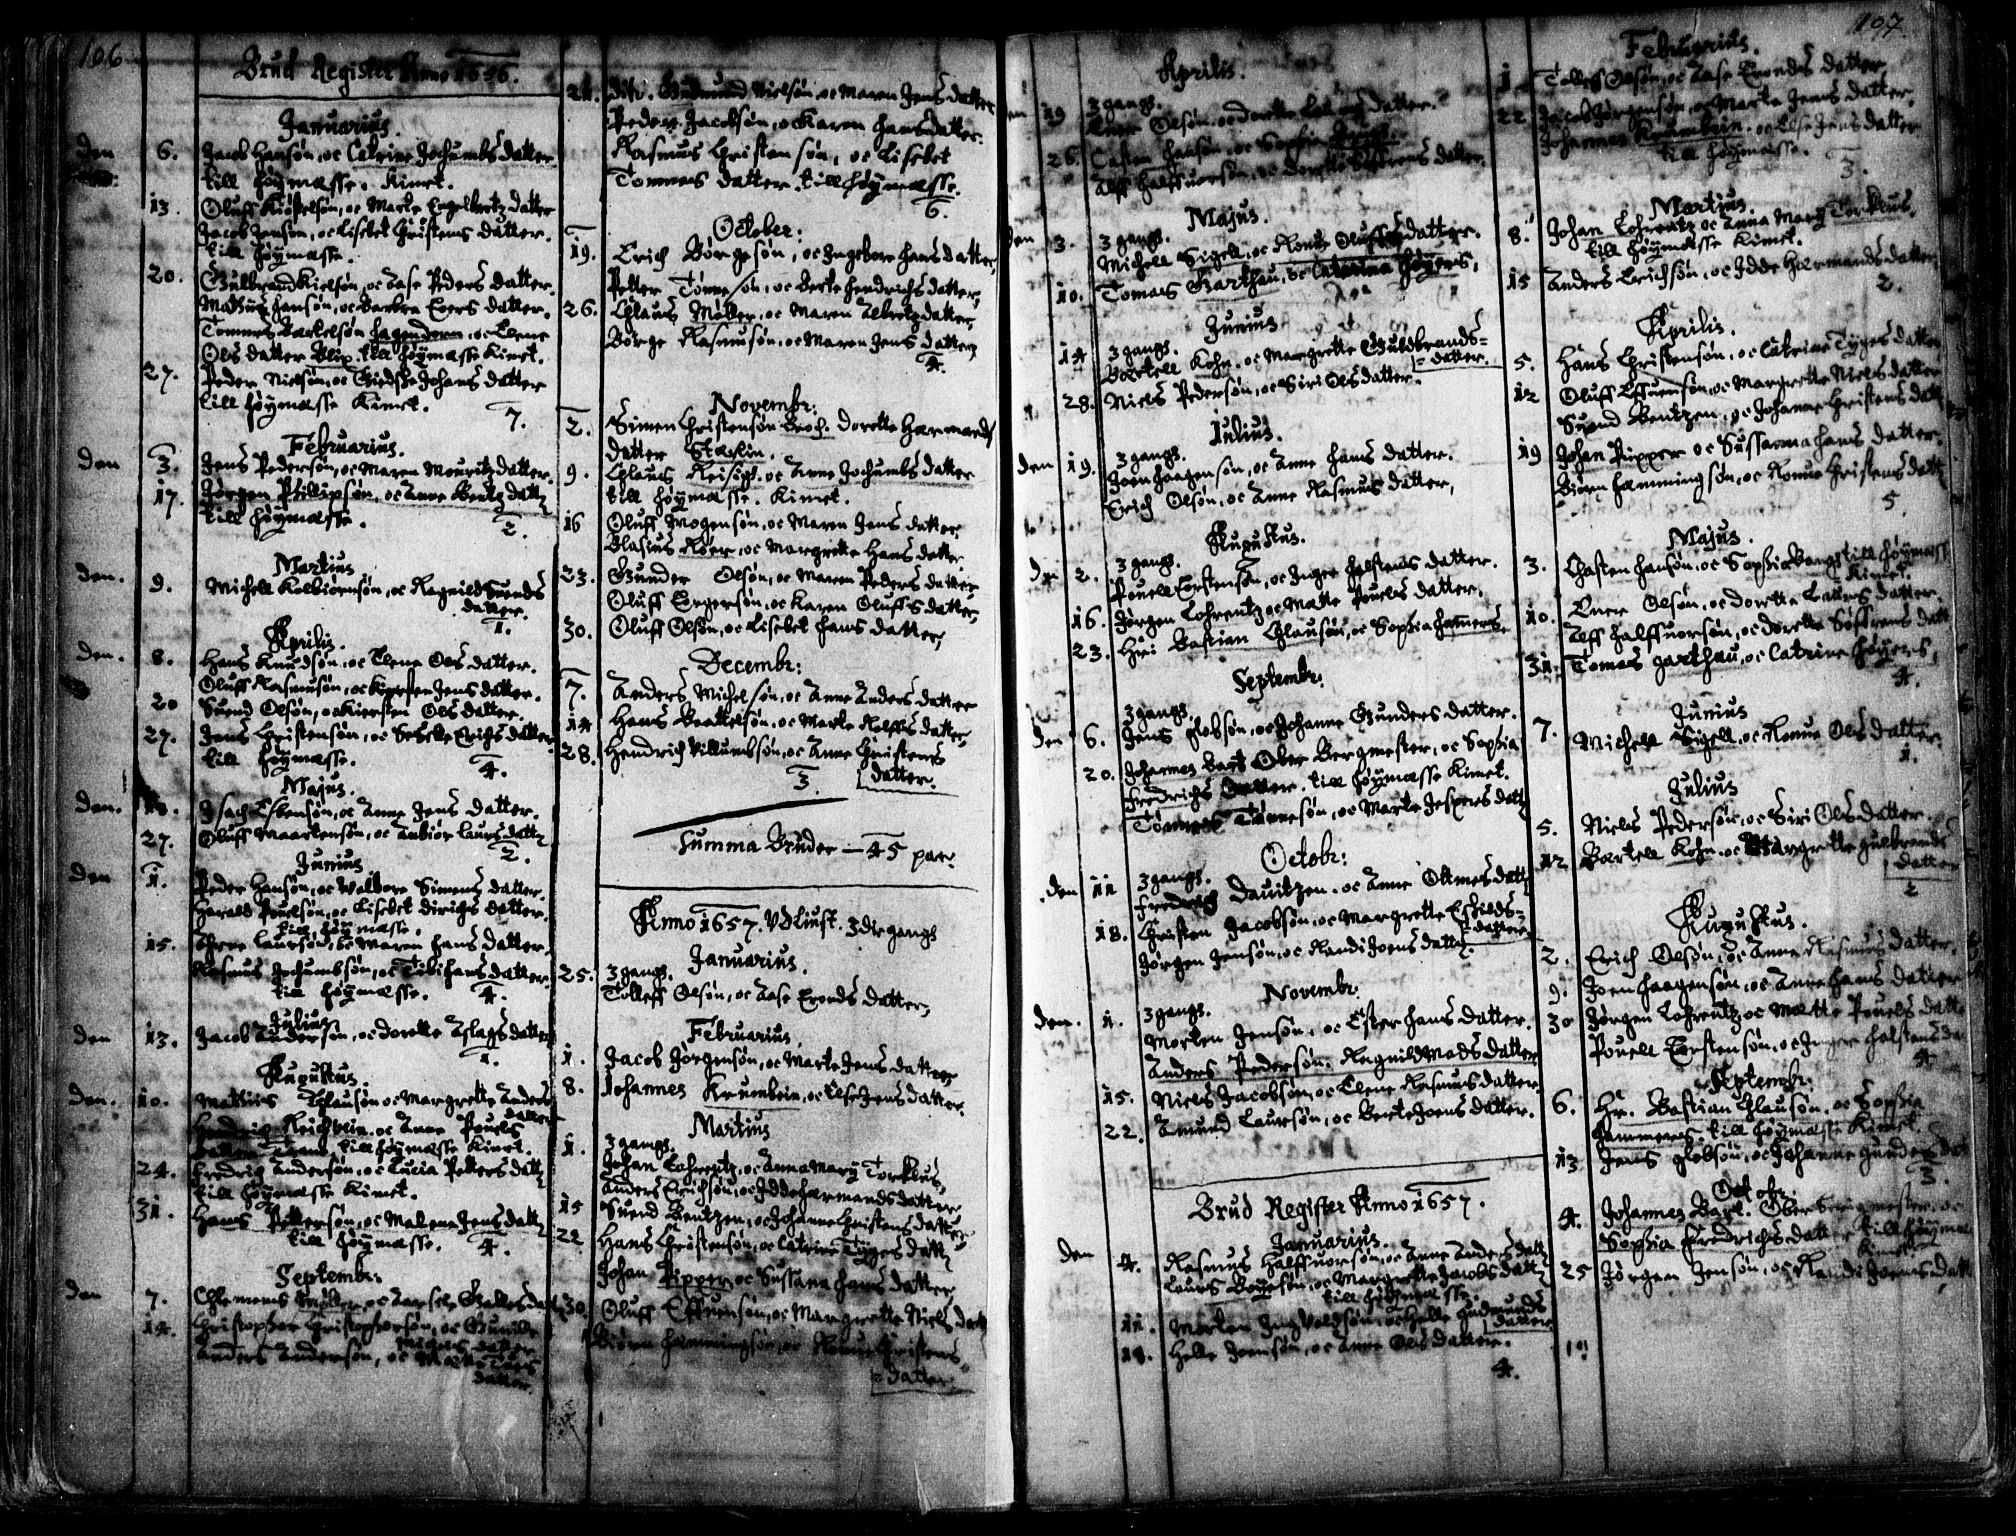 106
Brud Register Anno 1656.
Januarius.
Den 6. Jacob Hansøn, oc Catrine Jochumbs datter
till høymæsse. Kimet.
13. Oluff Kiøstelsøn, oc Marte Engelbretz datter
Jacob Jensøn, oc Lisebet Christens datter.
till høymæsse.
20. Gulbrand Kielsøn, oc Aase Peders datter.
Mathius Hansøn, oc Barbra Evers datter.
Tommes Bartelsøn Hagendorn, oc Elene
Ols datter Blix. till høymæsse Kimet.
27. Peder Nielsøn, oc Giedske Johans datter
till høymæsse Kimet.
7.
Februarius.
Den 3. Jens Pedersøn, oc Maren Mouritz datter.
17. Jørgen Phillipsøn, oc Anne Bentz datt
till høymæsse.
2.
Martius
Den. 9. Michell Kolbiørnsøn, oc Ragnild Suends
datter.
1.
Aprilis.
Den. 8. Hans Knudsøn, oc Elene Ols datter.
Oluff Rasmusøn, oc Kirsten Jens datter.
20 Suend Olsøn, oc Kiersten Ols datter.
27. Jens Christensøn, oc Erichs datter
till høymæsse.
4.
Majus.
Den. Isach Esbensøn, oc Anne Jens datter.
27. Oluff Maartensøn, oc Anbiør Laurs datt
2.
Junius
Den 1. Peder Hansøn, oc Walbore Simens datter.
Harald Pouelsøn, oc Lisebet Dirichs datter.
till høymæsse.
15. Laursøn, oc Maren Hans datter.
Rasmus Jochumbsøn, oc Hans datter.
till høymæsse.
4.
Julius
Den 13. Jacob Andersøn, oc Dorette Aslags datter
1.
Augustus.
Den. 10. Mathiis Clausøn oc Margrette Anders
datter
Reichwein, oc Anne Pouels
till høymæsse Kimet.
24. Fredrig Andersøn, oc Lucia Petters datt
till høymæsse Kimet.
31. Hans Pettersøn, oc Malene Jens datt
till høymæsse.
4.
Septembr:
Den 7. Clemens
14. Christopher Christophersøn, oc Gunild
datter
Anders Andersøn, oc
datter.
21. Dito. Gudmund Nielsøn, oc Maren Jens datter
Peder Jacobsøn, oc Karen Hans datter.
Rasmus Christensøn, oc Lisebet
Tommes datter. till høymæsse.
6.
October:
19. Erich Børgesøn, oc Ingebore Hans datter,
Petter Tønnesøn, oc Berte Hendrichs datter,
26. Claus Møller, oc Maren Albretz datter,
Børge Rasmusøn, oc Maren Jens datter
4.
Novembr:
2. Simen Christensøn Broch. Dorette Harmands
datter Stælin.
9. Claus Reisigh. oc Anne Jochumbs datter
till høymæsse. Kimet.
16 Oluff Mogensøn, oc Maren Jens datter.
Blasius Røer, oc Margrette Hans datter.
23. Gunder Olsøn, oc Maren Peders datter
Oluff Engersøn, oc Karen Oluffs datter,
30. Oluff Olsøn, oc Lisebet Hans datter,
Decembr:
7. Anders Michelsøn, oc Anne Anders datter
14 Hans Baattelsøn, oc Marte Rolffs datter,
28. Hendrich Villumbsøn, oc Anne Christens
datter.
3.
Summa Bruder — 45 par.
Anno 1657. Udliust. 3die gangs
Januarius.
25. 3 gangs.
Tolleff Olsøn, oc Aase Evends datter,
Februarius.
1. Jacob Jørgensøn, oc Marte Jens datter
8. Johannes Krumbein, oc Else Jens datter.
Martius
1. 3 gangs.
Johan Lohrentz, oc Anna Mary Torklus,
Anders Erichsøn, oc Idde Harmands datter.
15 Suend Bentzen, oc Johanne Christens datter
22 Hans Christensøn, oc Catrine Tyges datt
Johan Pipper, oc Sussana Hans datter,
30. Oluff Effuensøn, oc Margrette Niels datt
Biørn Hemmingsøn, oc Ronne Christens
datter.
107.
Aprilis.
Den 19 3 gangs.
Ener Olsøn, oc Dorette Laurs datter.
26. Casten Hansøn, oc Sophia
Alff Halffuorsøn, oc Dorette Søffrens datter.
Majus.
Den 3. 3 gangs.
Michell Sigell, oc Ronne Oluffs datter.
10. Tomas Garthau, oc Catarina Høyers,
Junius
14 3 gangs.
Bartell Kohn. oc Margrette Guldbrands=
=datter.
28. Niels Pedersøn, oc Siri Ols datter.
Julius.
Den 19. 3 gangs.
Joen Haagensøn, oc Anne Hans datter.
Erich Olsøn, oc Anne Rasmus datter,
Augustus.
Den 2. 3 gangs.
Pouell Torstensøn, oc Inger Halstens datter.
16. Jørgen Lohrentz oc Mette Pouels datter.
23. Hr: Bastian Clausøn, oc Sophia Hammers.
Septembr:
3 gangs.
Den 6. Jens Globsøn, oc Johanne Gunders datter.
20. Johannes Bart Ober Bergmester, oc Sophia
Fredrichs Datter. till høymæsse Kimet.
Tønnes Tønnesøn, oc Marte Jespers datt
Octobr:
Den 11 3 gangs.
Fredrich Dauitzen. oc Anne Ottmes datt
18. Christen Jacobsøn, oc Margrette Eschilds=
=datter.
Jørgen Jensøn, oc Randi Joens datt.
Novembr:
Den. 1. 3 gangs.
Morten Jensøn, oc Ester Hans datter.
Anders Pedersøn. Ragnild Mads datter
15. Niels Jacobsøn, oc Elene Rasmus datter.
22. Amund Laursøn, oc Berte Joens datter.
Brud Register Anno 1657.
Januarius.
Den 4. Rasmus Halffuorsøn, oc Anne Anders datt
Laurs Boyesøn, oc Margrette Jacobs datt
till høymæsse.
11. Morten Inguoldsøn, oc Helle Gudmunds
datter
18. Helle Joensøn, oc Anne Ols datter.
4.
Februarius.
1 Tolleff Olsøn, oc Aase Evends datter
22 Jacob Jørgensøn, oc Marte Jens datter.
Johannes Krumbein. oc Else Jens datter
till høymæsse.
3.
Martius
8. Johan Lohrentz oc Anna Mary Torklus.
till høymæsse Kimet.
15 Anders Erichsøn, oc Idde Harmands datter,
2.
Aprilis.
5. Hans Christensøn, oc Catrine Tyges datter
12 Oluff Effuensøn, oc Margrette Niels datter
Suend Bentzen, oc Johanne Christens datt
19 Johan Pipper oc Sussanna Hans datter.
Biørn Hemmingsøn, oc Ronne Christens datt
5
Majus.
3. Chasten Hansøn, oc Sophia Bangs till høymæss
Kimet.
10. Ener Olsøn, oc Dorette Laurs datter.
Alff Halffuorsøn, oc Dorette Søffrens datt
31. Tomas Garthau, oc Catrine Høyers,
4.
Junius
7. Michell Sigell, oc Ronne Ols datter.
1.
Julius
5. Niels Pedersøn, oc Siri Ols datter.
12 Bartell Kohn. oc Margrette Gulbrands
datter
2
Augustus.
2. Erich Olsøn, oc Anne Rasmus datter.
9. Joen Haagensøn, oc Anne Hans datter
30 Jørgen Lohrentz, oc Mette Pouels datte
Pouell Torstensøn, oc Inger Halstens da
4.
Septembr:
6. Hr. Bastian Clausøn, oc Sophia
Hammers. till høymæsse Kimet.
13 Jens Globsøn, oc Johanne Gunders dat
3.
Octobr:
4. Johannes Bart. Ober Bergmester, oc
Sophia Fredrichs datter till høymæ
25 Jørgen Jensøn, oc Randi Joens datt